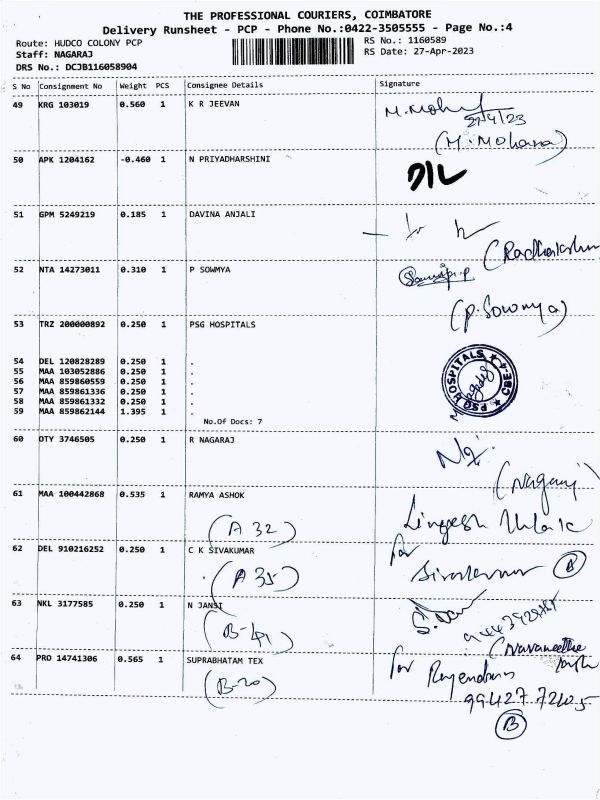 THE PROFESSIONAL COURIERS, COIMBATORE
Delivery Runsheet - PCP - Phone No.:0422-3505555 - Page No.:4
Route: HUDCO COLONY PCP
RS No.: 1160589
Staff: NAGARAJ
RS Date: 27-Apr-2023
DRS No.: DCJB116058904
S No Consignment No Weight PCS Consignee Details Signature
49 KRG 103019 0.560 1 K R JEEVAN
27/4/23
(M. Mohana)
50 APK 1204162 -0.460 1 N PRIYADHARSHINI
D/L
51 GPM 5249219 0.185 1 DAVINA ANJALI
52 NTA 14273011 0.310 1 P SOWMYA
(P. Sowmya)
53 TRZ 200000892 0.250 1 PSG HOSPITALS
54 DEL 120828289 0.250 1 .
55 MAA 103052886 0.250 1 .
56 MAA 859860559 0.250 1 .
57 MAA 859861336 0.250 1 .
58 MAA 859861332 0.250 1 .
59 MAA 859862144 1.395 1 .
No.Of Docs: 7
PSG HOSPITALS
CBE-4
60 OTY 3746505 0.250 1 R NAGARAJ
(Nagaraj)
61 MAA 100442868 0.535 1 RAMYA ASHOK
(A 32)
62 DEL 910216252 0.250 1 C K SIVAKUMAR
for
(A 35)
B
63 NKL 3177585 0.250 1 N JANSI
(B-41)
64 PRO 14741306 0.565 1 SUPRABHATAM TEX
for Rajendran
(B-20)
B